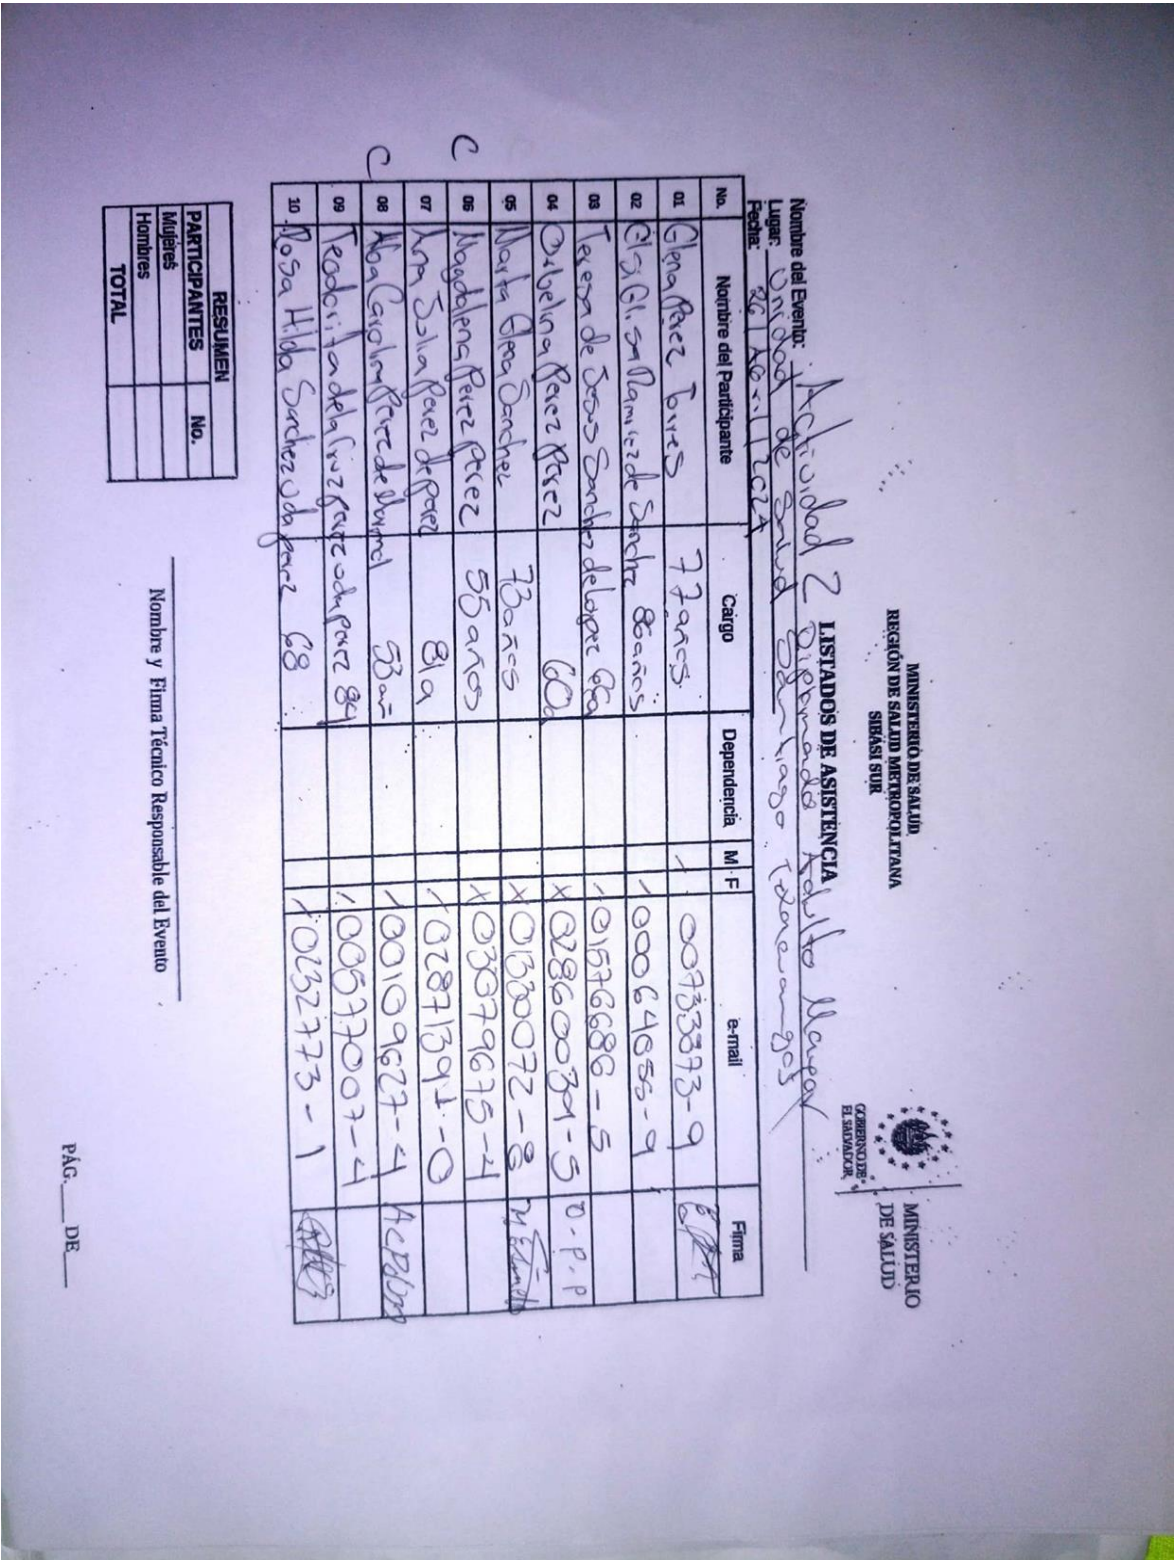 MINISTERIO DE SALUD
REGIÓN DE SALUD METROPOLITANA
SIBASI SUR
GOBIERNO DE
EL SALVADOR
MINISTERIO
DE SALUD
LISTADOS DE ASISTENCIA
Nombre del Evento: Actividad 2 Diplomado Adulto Mayor
Lugar: Unidad de Salud Santiago Texacuangos
Fecha: 26 / Abril / 2024
No. Nombre del Participante Cargo Dependencia M F e-mail Firma
01 Elena Perez Torres 77 años 00733373-9
02 Elsi Elisa Ramirez de Sanchez 86 años 00064056-9
03 Teresa de Jesus Sanchez de Lopez 01576686-5
04 Orbelina Perez Perez 60a x 02860039-5 O.P.P
05 Marta Elena Sanchez 73 años x 01330072-8
C 06 Magdalena Perez Perez 55 años x 03079675-4
07 Ana Julia Perez de perez 81a 02871391-0
C 08 Ana Carolina Perez de 53 añ 001099627-4
09 Teodorita de la Cruz perez vda perez 84 00577007-4
10 Rosa Hilda Sanchez vda perez 68 02327773-1
RESUMEN
PARTICIPANTES No.
Mujeres
Hombres
TOTAL
Nombre y Firma Técnico Responsable del Evento
PÁG.___ DE___